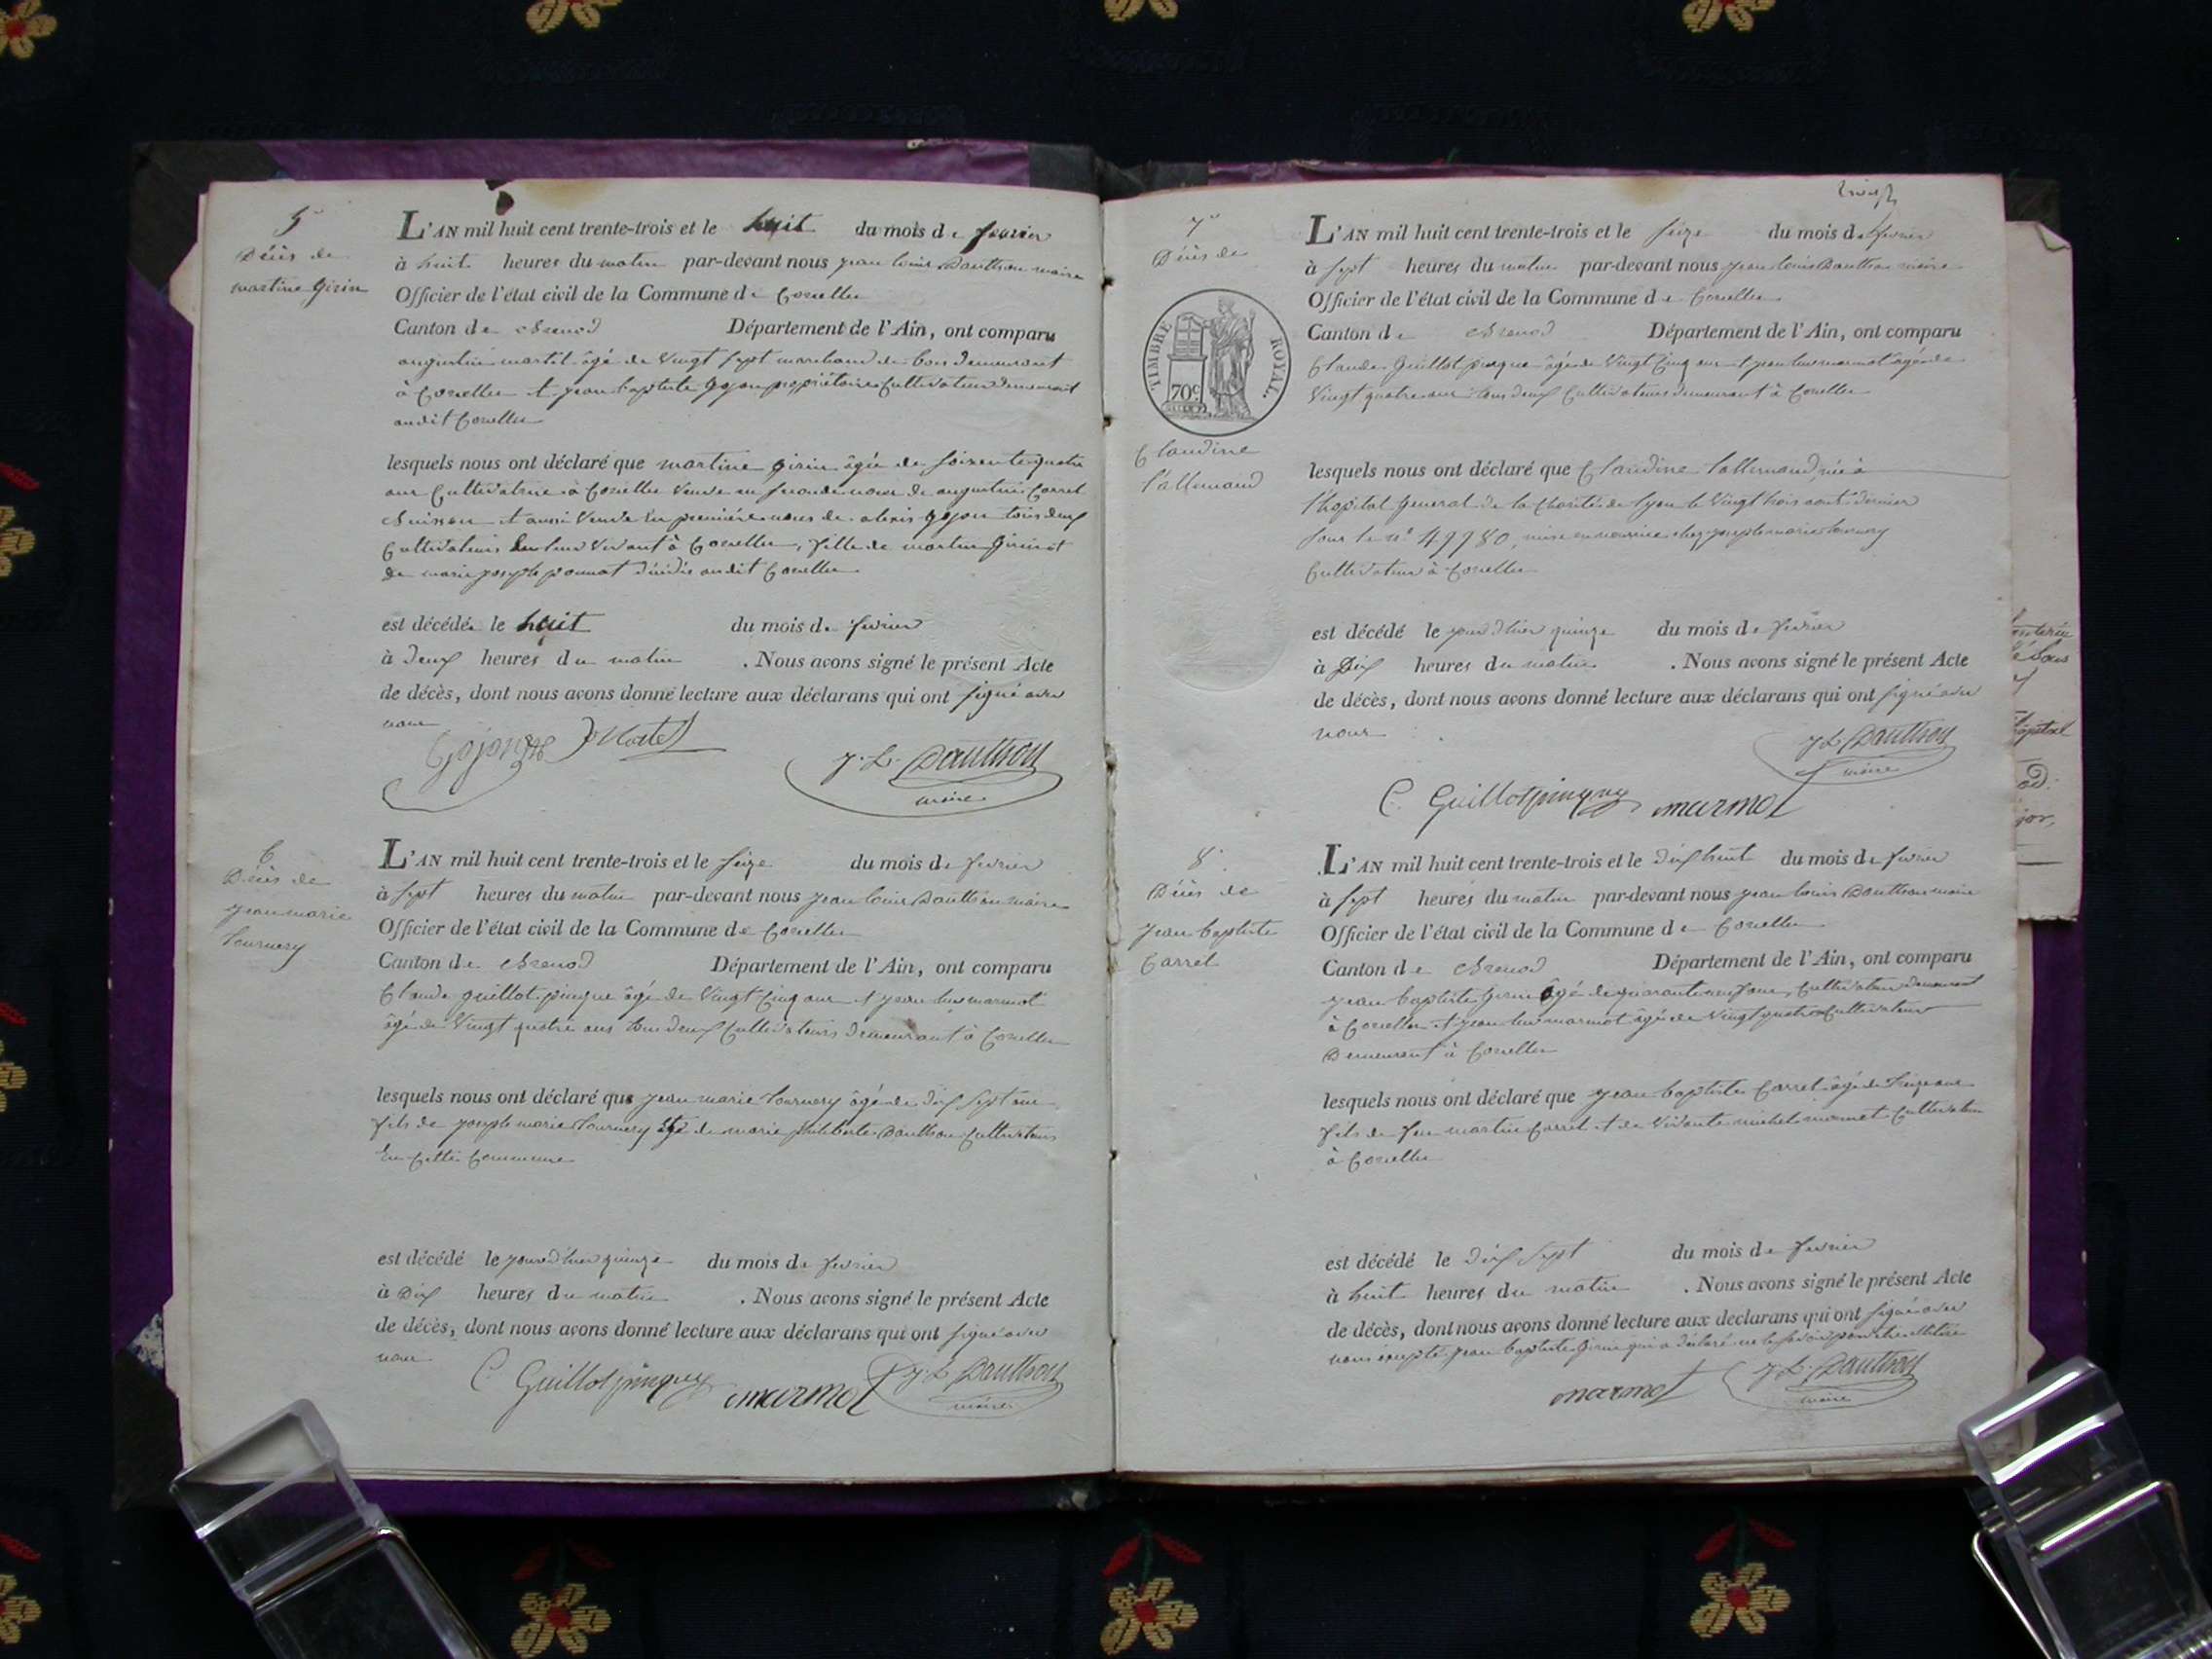 5
Décès de
martine Girin
L'AN mil huit cent trente-trois et le huit du mois de fevrier
à huit heures du matin par-devant nous jean louis Dauthon maire
Officier de l'état civil de la Commune de Corcelles
Canton de Brenod Département de l'Ain, ont comparu
augustin martel âgé de Vingt sept marchand de bois demeurant
à Corcelles et jean baptiste Gojon propriétaire Cultivateur demeurant
audit Corcelles
lesquels nous ont déclaré que martine Girin âgée de soixante quatre
ans Cultivatrice à Corcelles Veuve en seconde noces de augustin Carrel
et aussi Veuve en première noces de alexis gojon tous deux
Cultivateurs de leur Vivant à Corcelles, fille de martin Girin et
de marie josephe ponnat décédés audit Corcelles
est décédée le huit du mois de fevrier
à deux heures du matin . Nous avons signé le présent Acte
de décès, dont nous avons donné lecture aux déclarans qui ont signé avec
nous
Gojon Martel
J. L. Dauthon
maire
6
Décès de
jean marie
tournery
L'AN mil huit cent trente-trois et le seize du mois de fevrier
à sept heures du matin par-devant nous jean louis Dauthon maire
Officier de l'état civil de la Commune de Corcelles
Canton de Brenod Département de l'Ain, ont comparu
Claude guillot pinque âgé de Vingt Cinq ans et jean marmot
âgé de Vingt quatre ans tous deux Cultivateurs demeurant à Corcelles
lesquels nous ont déclaré que jean marie tournery âgé de dix sept ans
fils de joseph marie tournery et de marie philiberte Dauthon Cultivateurs
En Cette Commune
est décédé le jour d'hier quinze du mois de fevrier
à Dix heures du matin . Nous avons signé le présent Acte
de décès, dont nous avons donné lecture aux déclarans qui ont signé avec
nous
C. Guillot marmot J. L. Dauthon
maire
7
Décès de
TIMBRE ROYAL.
70c
Claudine
l'allemand
L'AN mil huit cent trente-trois et le seize du mois de fevrier
à sept heures du matin par-devant nous jean louis Dauthon maire
Officier de l'état civil de la Commune de Corcelles
Canton de Brenod Département de l'Ain, ont comparu
Claude Guillot pinque âgé de Vingt Cinq ans et jean marmot âgé de
Vingt quatre ans tous deux Cultivateurs demeurant à Corcelles
lesquels nous ont déclaré que Claudine lallemand née à
l'hopital General de la Charité de lyon le Vingt trois aout dernier
sous le n° 49980, mise en nourrice chez joseph marie tournery
Cultivateur à Corcelles
est décédé le jour d'hier quinze du mois de fevrier
à Dix heures du matin . Nous avons signé le présent Acte
de décès, dont nous avons donné lecture aux déclarans qui ont signé avec
nous
J L Dauthon
maire
C. Guillot marmot
8
Décès de
Jean baptiste
Carrel
L'AN mil huit cent trente-trois et le dix huit du mois de fevrier
à sept heures du matin par-devant nous jean louis Dauthon maire
Officier de l'état civil de la Commune de Corcelles
Canton de Brenod Département de l'Ain, ont comparu
jean baptiste Girin âgé de quarante neuf ans, Cultivateur demeurant
à Corcelles et jean marmot âgé de Vingt quatre Cultivateur
Demeurant à Corcelles
lesquels nous ont déclaré que jean baptiste Carrel âgé de ans
fils de feu martin Carrel et de Vivante Cultivateur
à Corcelles
est décédé le dix sept du mois de fevrier
à huit heures du matin . Nous avons signé le présent Acte
de décès, dont nous avons donné lecture aux declarans qui ont signé avec
nous excepté jean baptiste Girin qui a déclaré ne le savoir
marmot J. L. Dauthon
maire